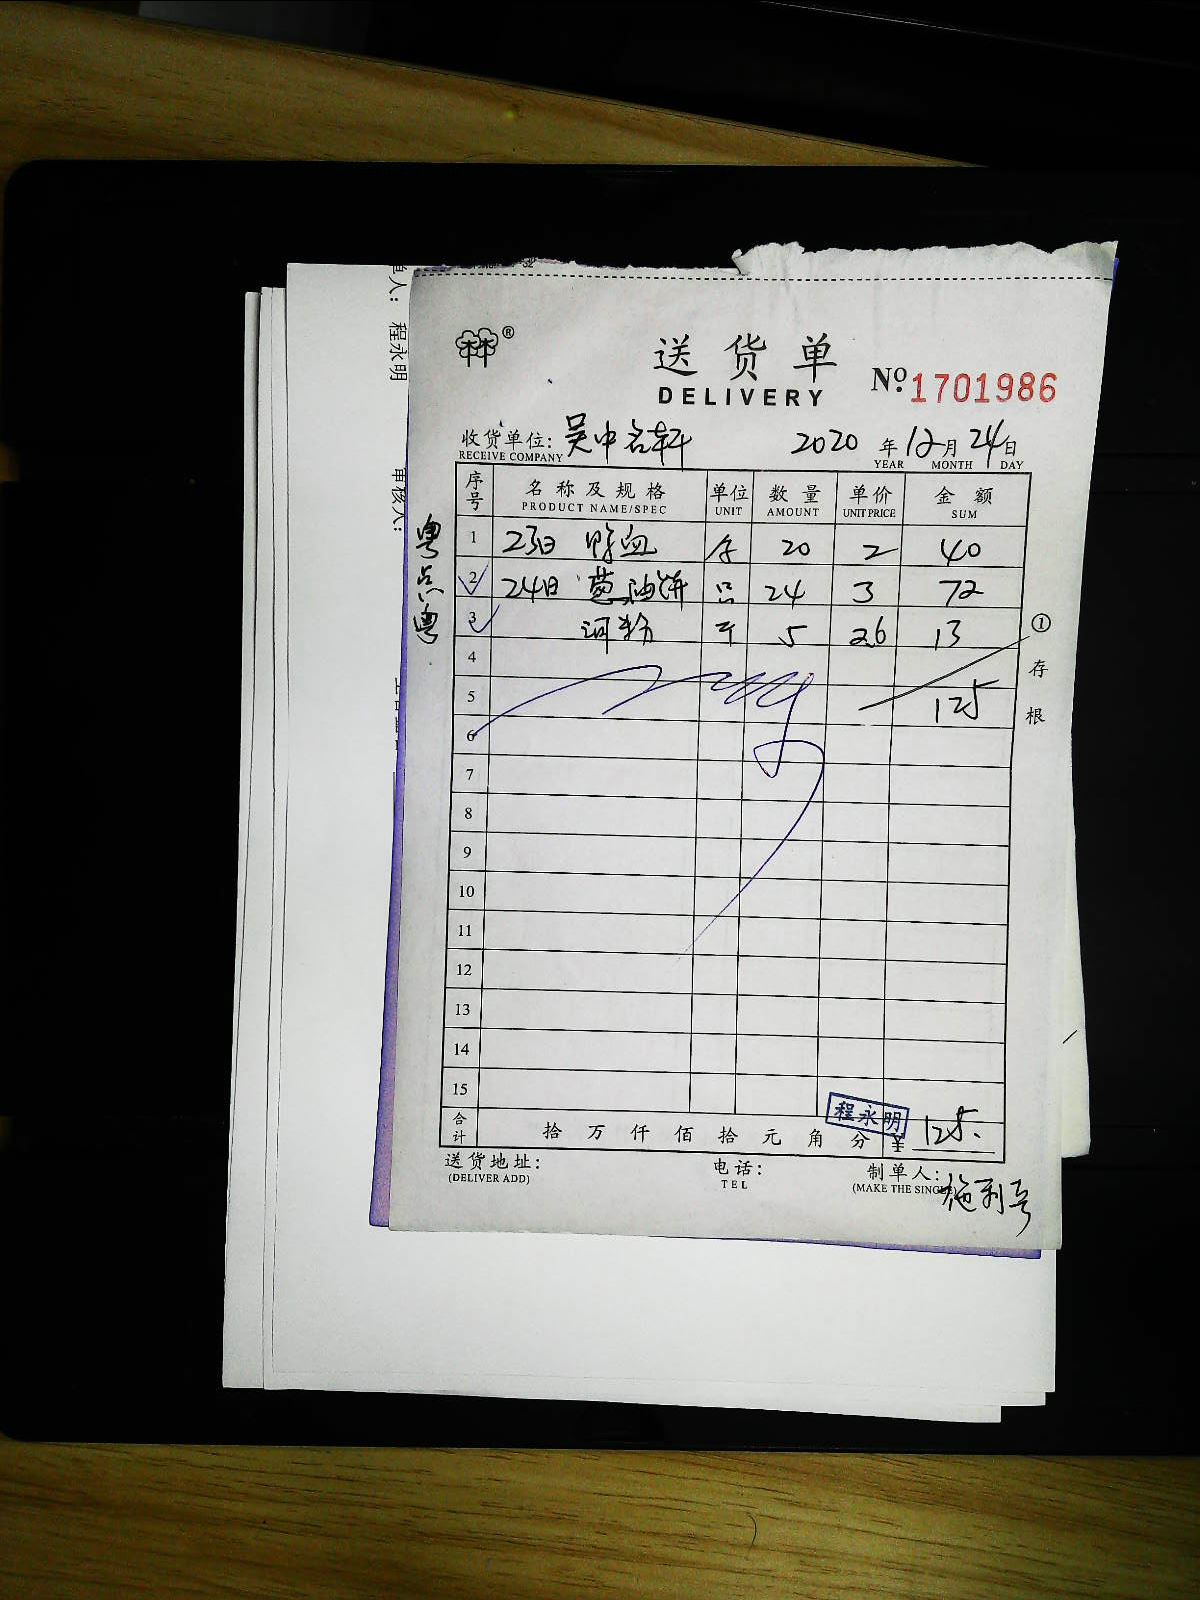 单人: 程永明
审核人:
®
送货单
DELIVERY
Nº 1701986
收货单位: 吴中名轩 2020年12月24日
RECEIVE COMPANY YEAR MONTH DAY
序号 名称及规格 单位 数量 单价 金额
PRODUCT NAME/SPEC UNIT AMOUNT UNIT PRICE SUM
粤点粤
1 23日 鸭血 20 2 40
2 24日 葱油饼 只 24 3 72
3 河粉 斤 5 2.6 13
4
5 125
6
7
8
9
10
11
12
13
14
15
①存根
程永明
合计 拾 万 仟 佰 拾 元 角 分 ¥ 125.
送货地址: 电话: 制单人:
(DELIVER ADD) TEL (MAKE THE SINGLE)